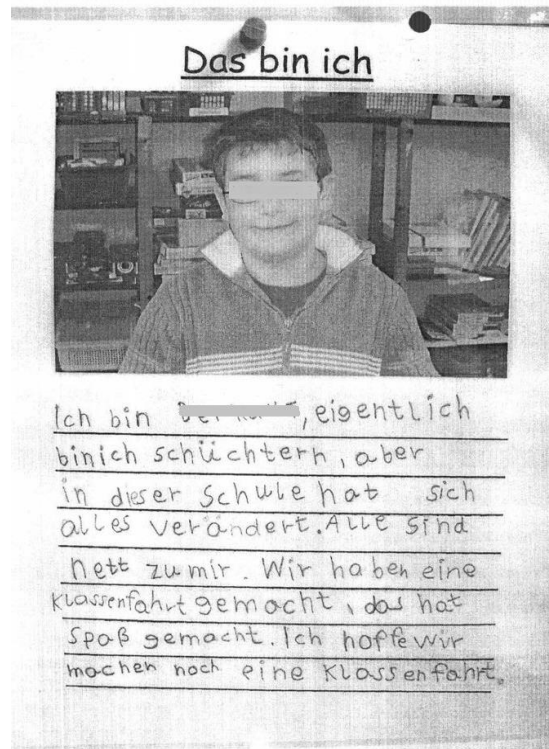 Das bin ich
Ich bin , eigentlich
binich schüchtern, aber
in dieser Schule hat sich
alles verändert. Alle sind
nett zu mir. Wir haben eine
Klassenfahrt gemacht, das hat
Spaß gemacht. Ich hoffe wir
machen noch eine Klassenfahrt.